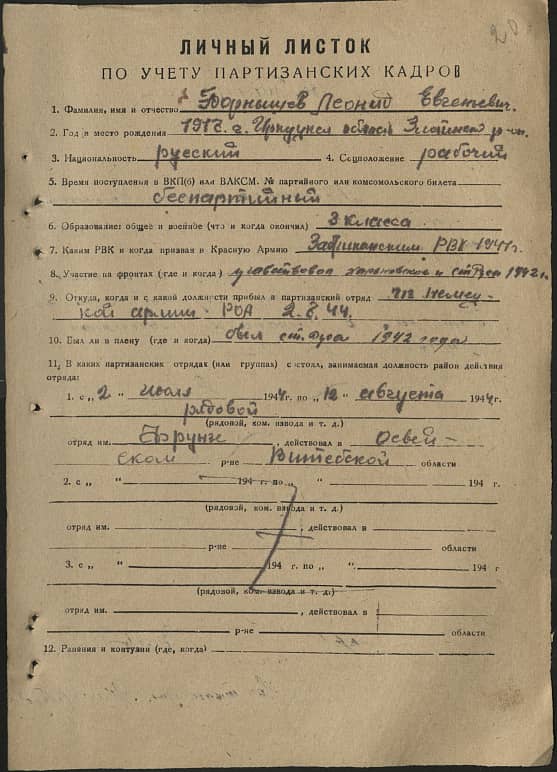 20
ЛИЧНЫЙ ЛИСТОК
ПО УЧЕТУ ПАРТИЗАНСКИХ КАДРОВ
1. Фамилия, имя и отчество Леонид Евгеньевич.
2. Год и место рождения г. область р-он.
3. Национальность русский 4. Соцположение рабочий
5. Время поступления в ВКП(б) или ВЛКСМ. № партийного или комсомольского билета
беспартийный
6. Образование: общее и военное (что и когда окончил) 3 класса
7. Каким РВК и когда призван в Красную Армию РВК 1941 г.
8. Участие на фронтах (где и когда) участвовал 1942 г.
9. Откуда, когда и с какой должности прибыл в партизанский отряд из немец-
кой армии РОА 44.
10. Был ли в плену (где и когда) был 1942 года
11. В каких партизанских отрядах (или группах) состоял, занимаемая должность район действия
отряда:
1. с „ 2 " июля 1944 г. по „ 12 " августа 1944 г.
рядовой
(рядовой, ком. взвода и т. д.)
отряд им. Фрунзе , действовал в Освей-
ском р-не Витебской области
2. с „ " 194 г. по „ " 194 г.
(рядовой, ком. взвода и т. д.)
отряд им. , действовал в
р-не области
3. с „ " 194 г. по „ " 194 г
(рядовой, ком. взвода и т. д.)
отряд им. , действовал в
р-не области
12. Ранения и контузии (где, когда)